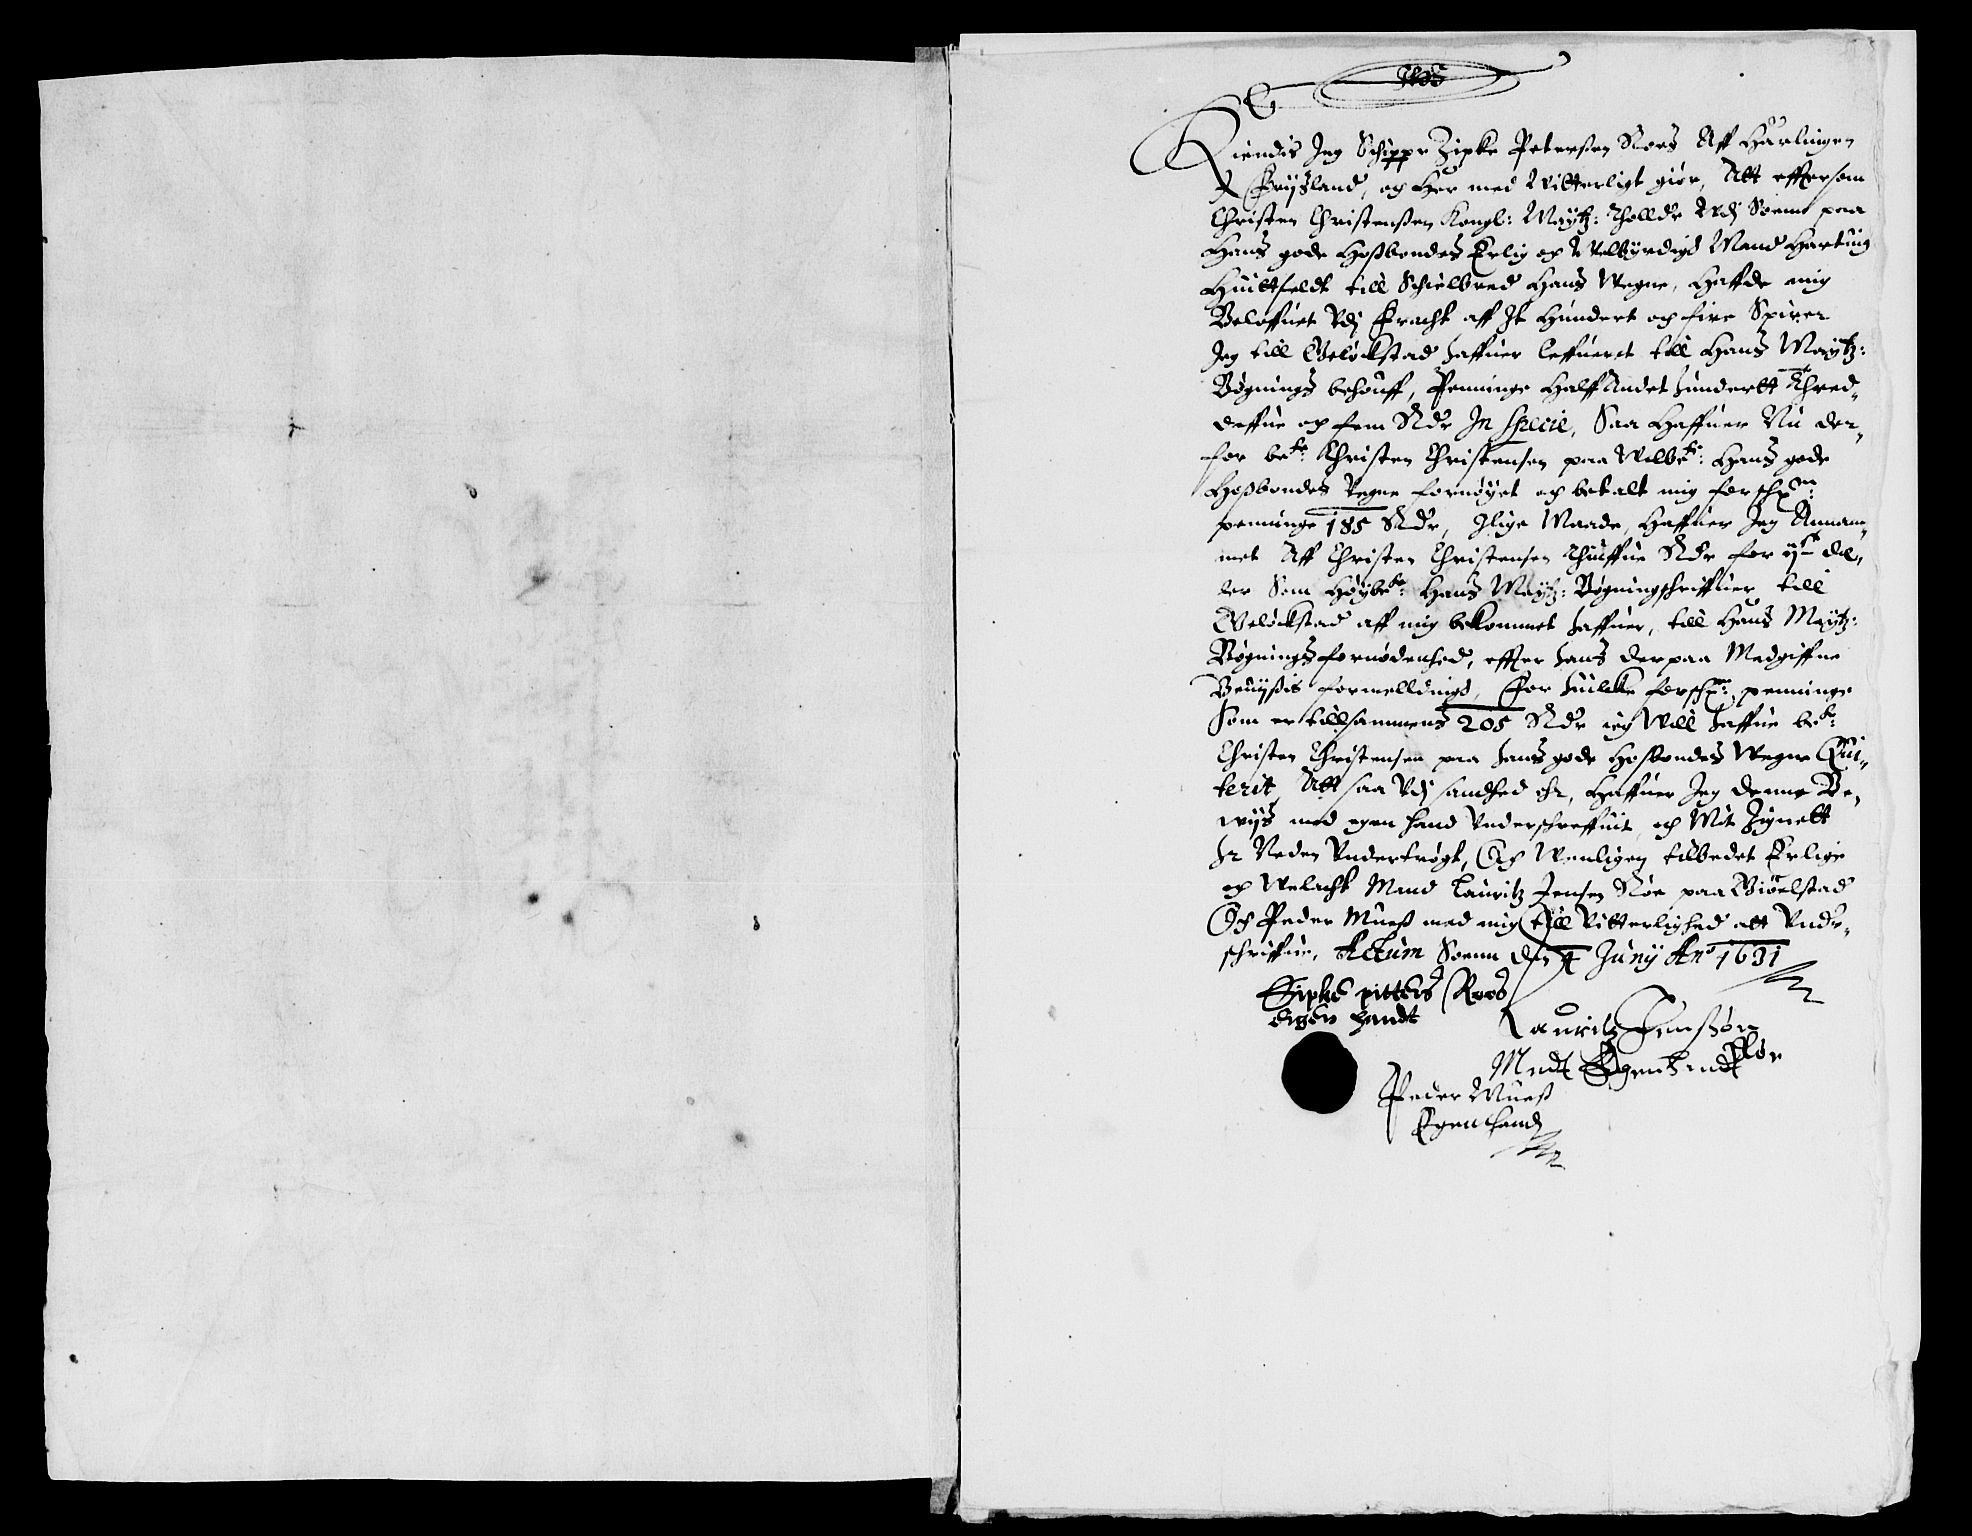 Kiendis Jeg Schipper Zipke Petersen Roes Aff Harlingen
J Frijsland, og Her med Vitterligt giør, Att effttersom
Christen Christensen Kongl: Maytz: Tholldr Vdj Soenn paa
Hans gode Hosbondes Erlig og Velbyrdigs Mand Hartuig
Huittfeldt till Schielbred Hans Vegne, Haffde mig
Beloffuet Vdj Fracht aff It Hundert og fire Spirer
Jeg till Gelyckstad haffuer leffueret till Hans Maytz:
Bygnings behouff, Penninge Halff Andet hundertt Thred-
deffue og fem Rdr In specie, Saa Haffuer Nu der-
for bete: Christen Christensen paa Velbete: Hans gode
Hosbondes Vegne fornøyet og betalt mig forschne:
penninge 185 Rdr, J lige Maade, Haffuer Jeg Annam-
met Aff Christen Christensen Thiuffue Rdr for del-
ler Som Høybete: Hans Maytz: Bygningschriffuer till
Gelyckstad aff mig bekommet haffuer, till Hans Maytz:
Bygnings fornødenhed, effter hans derpaa Medgiffne
Beuijsis formelldings, For huilcke forschne: penninge
som er tillsammens 205 Rdr ieg Vill haffue bete:
Christen Christensen paa hans gode Hosbondes Vegne Qui-
terit, Att saa Vdj sandhed er, Haffuer Jeg denne Be-
vijs med egen hand Vnderschreffuit, og Mit Zignett
her Neden Vndertrøgt, Och Venligen tilbedet Erlige
og Velacht Mand Lauritz Jensen Floe paa Giøelstad
Och Peder Mues med mig till Vitterlighed att Vnder-
schriffue, Actum Soenn den 4 Junij Ano 1631
Sipke pitters Roos
eigen handt
Lauritz Jensøn
Fløe
Medt Egen handt
Peder Mues
Egen hand